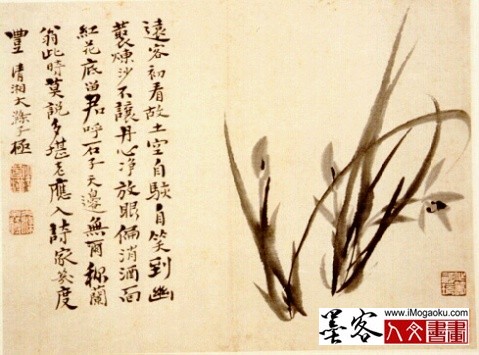 遠客初看故土空自駭自笑到幽
藂煉沙不讓丹心淨放眼消酒面
紅花底留君呼石子天邊無爾稱蘭
翁此時莫說多堪老應入詩家幾度
豐 清湘大滌子極
www.iMogaoku.com
墨客 人文書畫